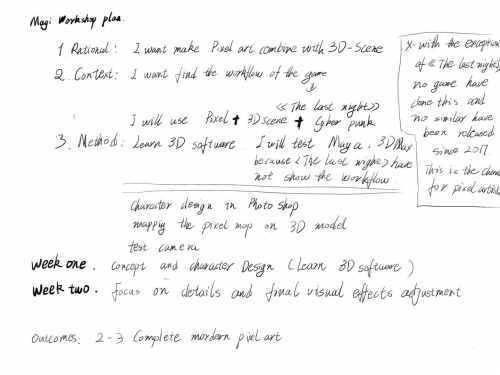 Magi Workshop plan.
1. Rational: I want make Pixel art combine with 3D-Scene
2. Context: I want find the workflow of the game
↓
<<The last night>>
I will use Pixel + 3D scene + Cyber punk
3. Method: Learn 3D software. I will test Maya. 3D Max
because <The last nighe> have
not show the workflow.
Character design in Photo shop
mappig the pixel map on 3D model
test camera
Week one. Concept and character Design (Learn 3D software)
Week two. focus on details and final visual effects adjustment
Outcomes: 2-3 Complete mordern pixel art
x. with the exception
of <<The last night>>
no game have
done this, and
no similar have
been released
since 2017.
This is the chance
for pixel artists